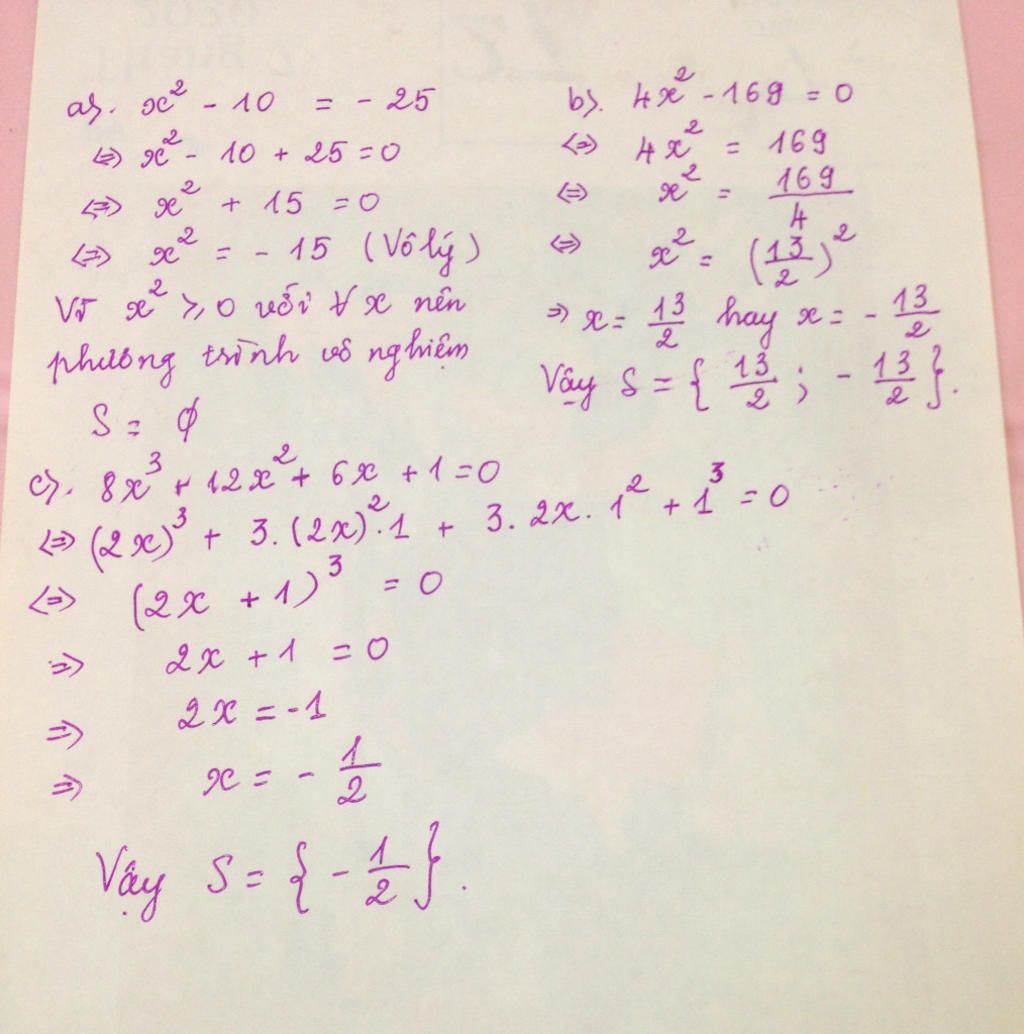 a). x² - 10 = - 25
⇔ x² - 10 + 25 = 0
⇔ x² + 15 = 0
⇔ x² = - 15 (Vô lý)
Vì x² ⩾ 0 với ∀ x nên
phương trình vô nghiệm
S = ∅
b). 4x² - 169 = 0
⇔ 4x² = 169
⇔ x² = 169/4
⇔ x² = (13/2)²
⇒ x = 13/2 hay x = - 13/2
Vậy S = { 13/2 ; - 13/2 }.
c). 8x³ + 12x² + 6x + 1 = 0
⇔ (2x)³ + 3.(2x)².1 + 3.2x.1² + 1³ = 0
⇔ (2x + 1)³ = 0
⇒ 2x + 1 = 0
⇒ 2x = -1
⇒ x = - 1/2
Vậy S = { - 1/2 }.